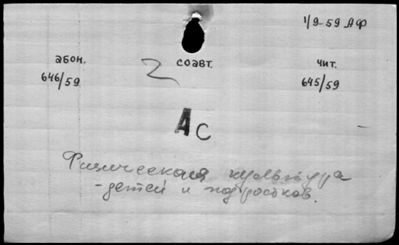 1/9-59 АФ
абон. 2 соавт. чит.
646/59 645/59
АС
Физическая культура
- детей и подростков.